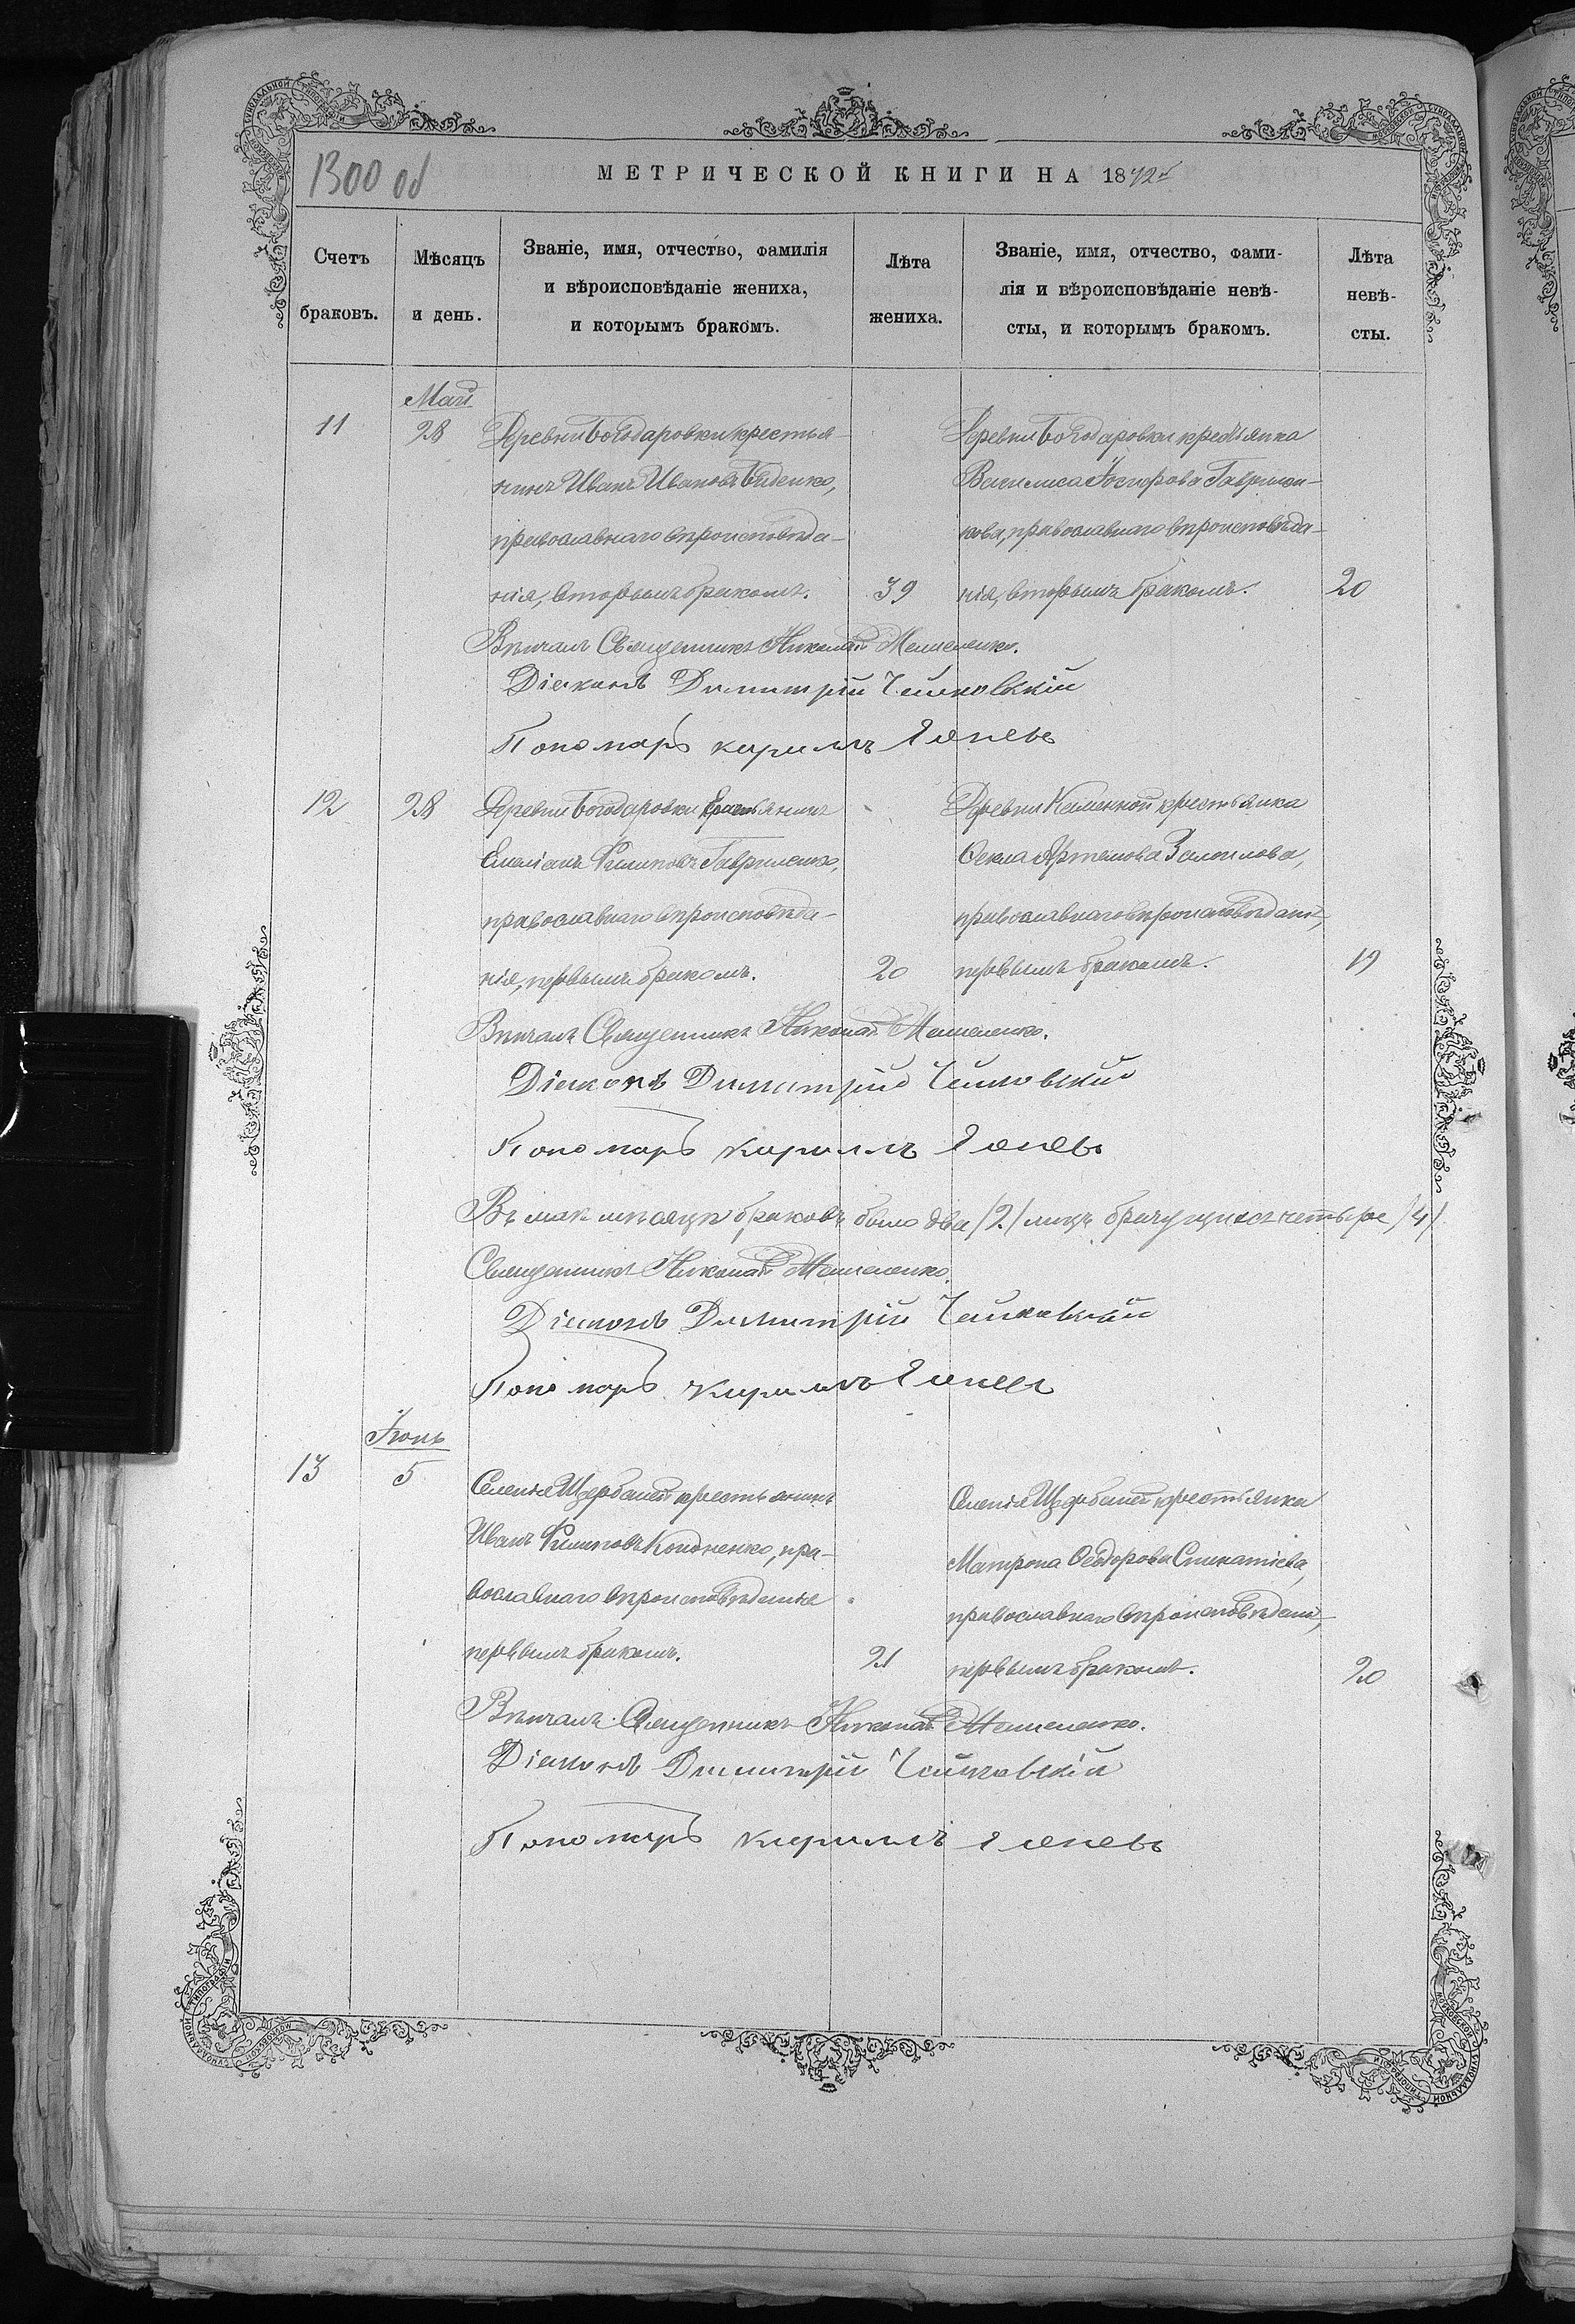 1300 об
МЕТРИЧЕСКОЙ КНИГИ НА 1872
Счетъ браковъ.
Мѣсяцъ и день.
Званіе, имя, отчество, фамилія
и вѣроисповѣданіе жениха,
и которымъ бракомъ.
Лѣта жениха.
Званіе, имя, отчество, фами-
лія и вѣроисповѣданіе невѣ-
сты, и которымъ бракомъ.
Лѣта невѣ-
сты.
Май
11
28
Деревни Богодаровки крестья-
нинъ Иванъ Ивановъ
православнаго вѣроисповѣда-
нія, вторымъ бракомъ.
39
Деревни Богодаровки крестьянка
Василиса
кова, православнаго вѣроисповѣда-
нія, вторымъ бракомъ.
20
Вѣнчалъ Священникъ Николай
Діаконъ Димитрій Чайковскій
Пономарь Кирилъ
12
28
Деревни Богодаровки крестьянинъ
Емеліанъ Филиповъ Гавриленко,
православнаго вѣроисповѣда-
нія, первымъ бракомъ.
20
Деревни Каменной крестьянка
Ѳекла Артемова
православнаго вѣроисповѣданія,
первымъ бракомъ.
19
Вѣнчалъ Священникъ Николай
Діаконъ Димитрій Чайковскій
Пономарь Кирилъ
Въ маѣ мѣсяцѣ браковъ было два /2/ лицъ четыре /4/
Священникъ Николай
Діаконъ Димитрій Чайковскій
Пономарь Кирилъ
Іюнь
13
5
Селенія крестьянинъ
Иванъ Филиповъ пра-
вославнаго вѣроисповѣданія
первымъ бракомъ.
21
Селенія крестьянка
Матрона Ѳеодорова
православнаго вѣроисповѣданія,
первымъ бракомъ.
20
Вѣнчалъ Священникъ Николай
Діаконъ Димитрій Чайковскій
Пономарь Кирилъ